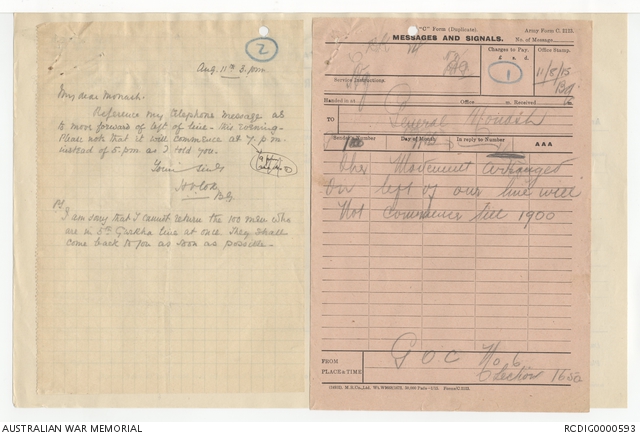 2
Aug. 11th 3. p.m
My dear Monash.
Reference my telephone message as
to move forward of left of line - this evening -
Please note that it will commence at 7. p.m.
instead of 5. p.m as I told you.
Yours
H V Cox
B.G.
PS
I am sorry that I cannot return the 100 men who
are in 5th Gurkha line at once. They shall
come back to you as soon as possible -
"C" Form (Duplicate).
Army Form C. 2123.
MESSAGES AND SIGNALS.
No. of Message
Charges to Pay.
£ s. d.
Office Stamp.
1
11/8/15
Service Instructions.
Handed in at
Office
m. Received
TO
General Monash
Sender's Number
Day of Month
In reply to Number
AAA
The Movement arranged
on left of our line will
not commence till 1900
FROM
PLACE & TIME
G O C No 6
Section 1650
AUSTRALIAN WAR MEMORIAL
RCDIG0000593